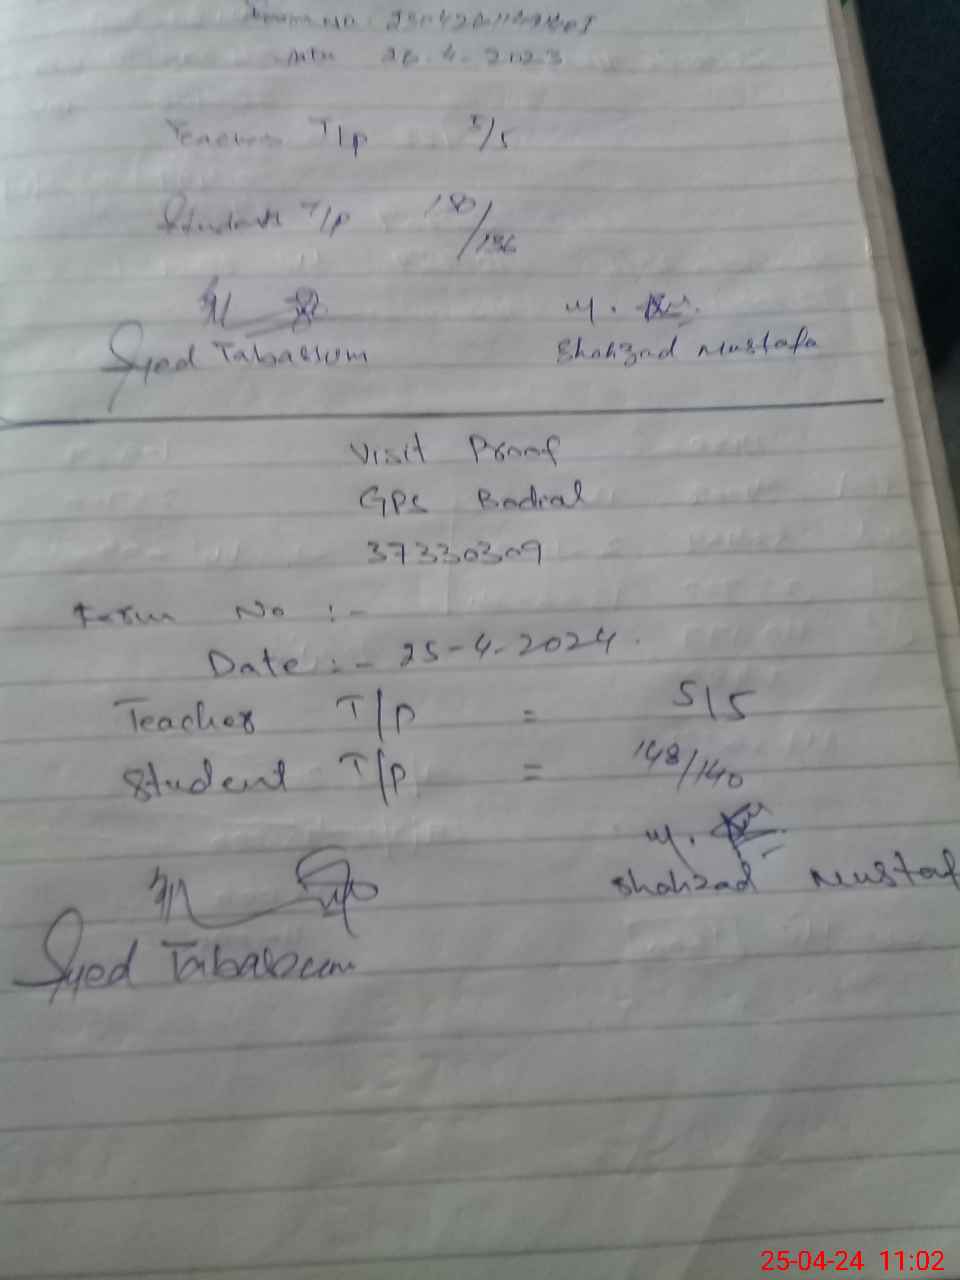 26-4-2023
Teacher T/p 5/5
Students T/p 130/136
Syed Tabassum
M.
Shahzad Mustafa
Visit Proof
GPS Badial
37330309
Form No :-
Date :- 25-4-2024.
Teacher T/p = 5/5
Student T/p = 148/140
M.
Shahzad Mustaf
Syed Tabassum
25-04-24 11:02